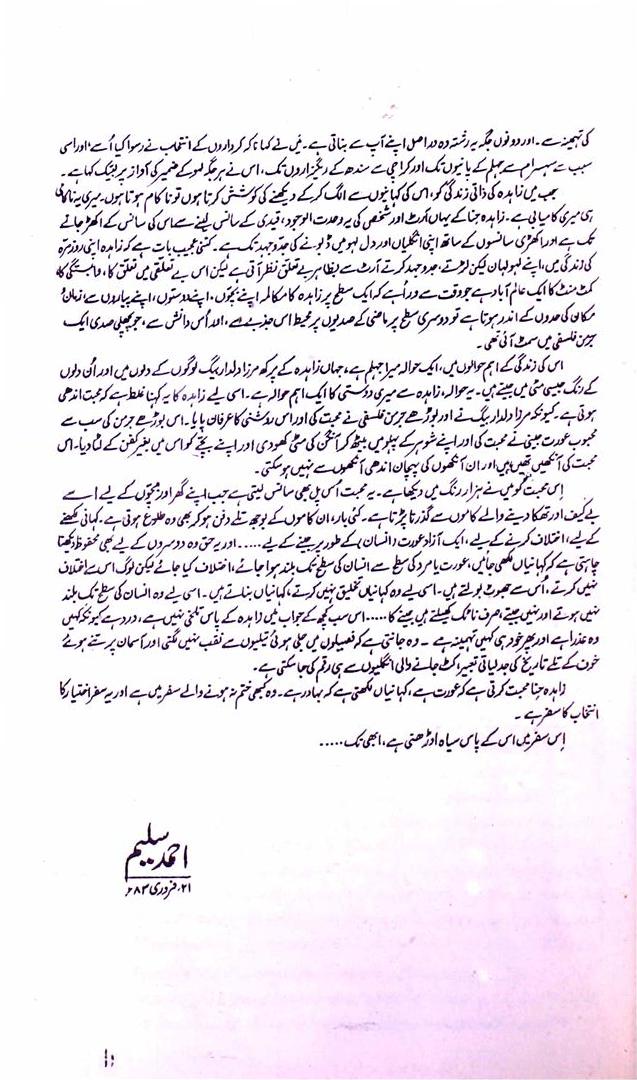 کی تہمینہ سے۔ اور دونوں جگہ یہ رشتہ وہ دراصل اپنے آپ سے بناتی ہے۔ میں نے کہا نا کہ کرداروں کے انتخاب نے رسوا کیا اُسے اور اسی
سبب سے سہسرام سے جہلم کے پانیوں تک اور کراچی سے سندھ کے ریگزاروں تک، اس نے ہر جگہ لہو کے ضمیر کی آواز پر لبّیک کہا ہے۔
جب میں زاہدہ کی ذاتی زندگی کو، اس کی کہانیوں سے الگ کر کے دیکھنے کی کوشش کرتا ہوں تو ناکام ہوتا ہوں۔ میری یہ ناکامی
ہی میری کامیابی ہے۔ زاہدہ حنا کے یہاں آرٹ اور شخص کی یہ وحدت الوجود، قیدی کے سانس لینے سے اس کی سانس کے اکھڑ جانے
تک ہے اور اکھڑی سانسوں کے ساتھ اپنی انگلیاں اور دل لہو میں ڈبونے کی جدوجہد تک ہے۔ کتنی عجیب بات ہے کہ زاہدہ اپنی روزمرہ
کی زندگی میں، اپنے لہولہان لیکن لڑتے، جدوجہد کرتے آرٹ سے بظاہر بے تعلق نظر آتی ہے لیکن اس بے تعلقی میں تعلق کا، وابستگی کا،
کمٹ منٹ کا ایک عالم آباد ہے جو وقت سے ورا ہے کہ ایک سطح پر زاہدہ کا مکالمہ اپنے بچّوں، اپنے دوستوں، اپنے پیاروں سے، زمان و
مکان کی حدوں کے اندر ہوتا ہے تو دوسری سطح پر ماضی کے صدیوں پر محیط اس جذبے سے، اور اُس دانش سے، جو پچھلی صدی ایک
جرمن فلسفی میں سمٹ آئی تھی۔
اس کی زندگی کے اہم حوالوں میں، ایک حوالہ میرا جہلم ہے، جہاں زاہدہ کے پرکھ مرزا دلدار بیگ لوگوں کے دلوں میں اور اُن دلوں
کے رنگ جیسی مٹی میں جیتے ہیں۔ یہ حوالہ، زاہدہ سے میری دوستی کا ایک اہم حوالہ ہے۔ اسی لیے زاہدہ کا یہ کہنا غلط ہے کہ محبت اندھی
ہوتی ہے۔ کیونکہ مرزا دلدار بیگ نے اور بوڑھے جرمن فلسفی نے محبت کی اور اس روشنی کا عرفان پایا۔ اس بوڑھے جرمن کی سب سے
محبوب عورت جینی نے محبت کی اور اپنے شوہر کے پہلو میں بیٹھ کر آنگن کی مٹی کھودی اور اپنے بچّے کو اس میں بغیر کفن کے لٹا دیا۔ اس
محبت کی آنکھیں تھیں ہیں اور ان آنکھوں کی پہچان اندھی آنکھوں سے نہیں ہو سکتی۔
اِس محبت کو میں نے ہزار رنگ میں دیکھا ہے۔ یہ محبت اُس پل بھی سانس لیتی ہے جب اپنے گھر اور بچّوں کے لیے اسے
بے کیف اور تھکا دینے والے کاموں سے گذرنا پڑتا ہے۔ کئی بار، ان کاموں کے بوجھ تلے دفن ہو کر بھی وہ طلوع ہوتی ہے۔ کہانی لکھنے
کے لیے، اختلاف کرنے کے لیے، ایک آزاد عورت (انسان) کے طور پر جینے کے لیے..... اور یہ حق وہ دوسروں کے لیے بھی محفوظ دیکھنا
چاہتی ہے کہ کہانیاں لکھی جائیں، عورت یا مرد کی سطح سے انسان کی سطح تک بلند ہوا جائے، اختلاف کیا جائے لیکن لوگ اس سے اختلاف
نہیں کرتے، اُس سے جھوٹ بولتے ہیں۔ اسی لیے وہ کہانیاں تخلیق نہیں کرتے، کہانیاں بناتے ہیں۔ اسی لیے وہ انسان کی سطح تک بلند
نہیں ہوتے اور نہیں جیتے، صرف ناٹک کھیلتے ہیں جینے کا..... اس سب کچھ کے جواب میں زاہدہ کے پاس تلخی نہیں ہے، درد ہے کیونکہ کہیں
وہ عذرا ہے اور پھر خود ہی کہیں تہمینہ ہے۔ وہ جانتی ہے کہ فصیلوں میں جلی ہوئی تیلیوں سے نقب نہیں لگتی اور آسمان پر تنے ہوئے
خون کے تلے تاریخ کی جدلیاتی تعبیر، کٹ جانے والی انگلیوں سے ہی رقم کی جا سکتی ہے۔
زاہدہ حِنا محبت کرتی ہے کہ عورت ہے، کہانیاں لکھتی ہے کہ بہادر ہے۔ وہ کبھی ختم نہ ہونے والے سفر میں ہے اور یہ سفر اختیار کا
انتخاب کا سفر ہے۔
اِس سفر میں اس کے پاس سیاہ اوڑھنی ہے، ابھی تک.....
احمد سلیم
۲۱؍ فروری ۸۳ء